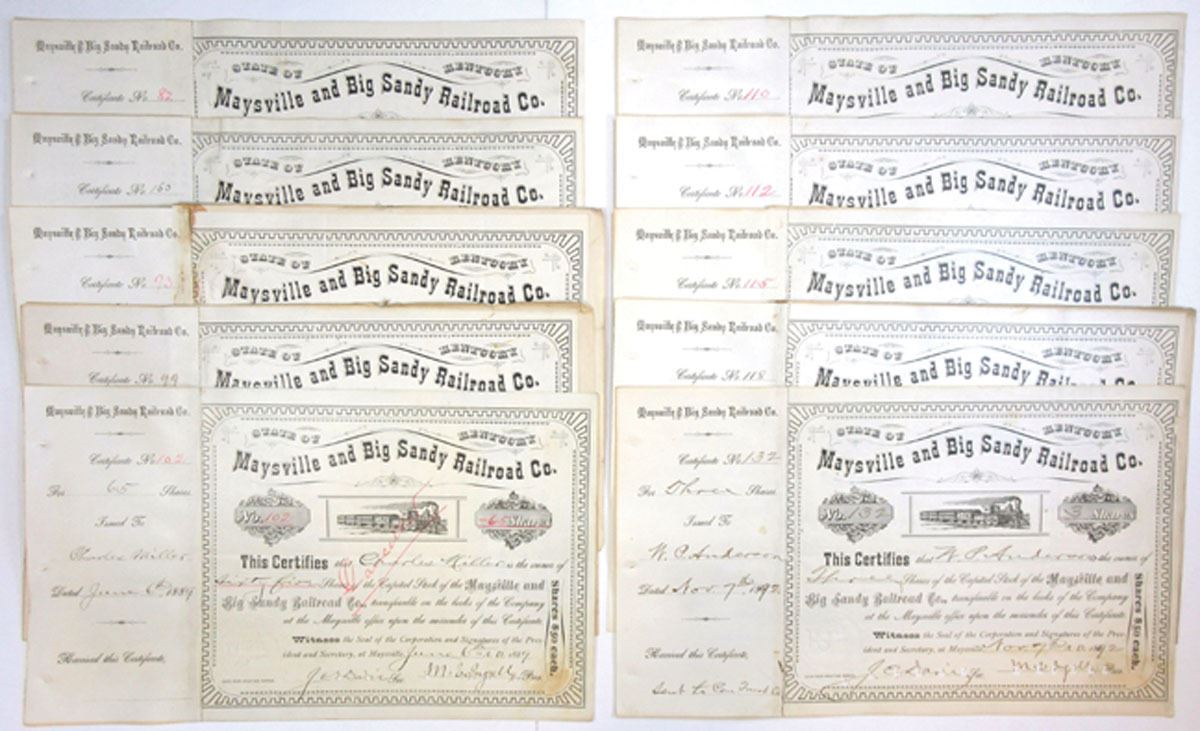 Maysville & Big Sandy Railroad Co.
Certificate No. 82
STATE OF KENTUCKY
Maysville and Big Sandy Railroad Co.
Maysville & Big Sandy Railroad Co.
Certificate No. 160
STATE OF KENTUCKY
Maysville and Big Sandy Railroad Co.
Maysville & Big Sandy Railroad Co.
Certificate No. 93
STATE OF KENTUCKY
Maysville and Big Sandy Railroad Co.
Maysville & Big Sandy Railroad Co.
Certificate No. 99
STATE OF KENTUCKY
Maysville and Big Sandy Railroad Co.
Maysville & Big Sandy Railroad Co.
Certificate No. 102
For 65 Shares
Issued To
Charles Miller
Dated June 6th 1889
Received this Certificate,
STATE OF KENTUCKY
Maysville and Big Sandy Railroad Co.
No. 102
65 Shares
This Certifies that Charles Miller is the owner of
Sixty five Shares of the Capital Stock of the Maysville and
Big Sandy Railroad Co., transferable on the books of the Company
at the Maysville office upon the surrender of this Certificate.
Witness the Seal of the Corporation and Signatures of the Pres-
ident and Secretary, at Maysville, June 6th A.D. 1889
Shares $50 each.
Sec. M. E. Ingalls Pres.
Cancelled
Maysville & Big Sandy Railroad Co.
Certificate No. 110
STATE OF KENTUCKY
Maysville and Big Sandy Railroad Co.
Maysville & Big Sandy Railroad Co.
Certificate No. 112
STATE OF KENTUCKY
Maysville and Big Sandy Railroad Co.
Maysville & Big Sandy Railroad Co.
Certificate No. 115
STATE OF KENTUCKY
Maysville and Big Sandy Railroad Co.
Maysville & Big Sandy Railroad Co.
Certificate No. 118
STATE OF KENTUCKY
Maysville and Big Sandy Railroad Co.
Maysville & Big Sandy Railroad Co.
Certificate No. 132
For Three Shares
Issued To
W. P. Anderson
Dated Nov. 7th 1892
Received this Certificate,
Sent to Cen Trust Co
STATE OF KENTUCKY
Maysville and Big Sandy Railroad Co.
No. 132
3 Shares
This Certifies that W. P. Anderson is the owner of
Three Shares of the Capital Stock of the Maysville and
Big Sandy Railroad Co., transferable on the books of the Company
at the Maysville office upon the surrender of this Certificate.
Witness the Seal of the Corporation and Signatures of the Pres-
ident and Secretary, at Maysville, Nov 7th A.D. 1892
Shares $50 each.
Sec. M. E. Ingalls Pres.